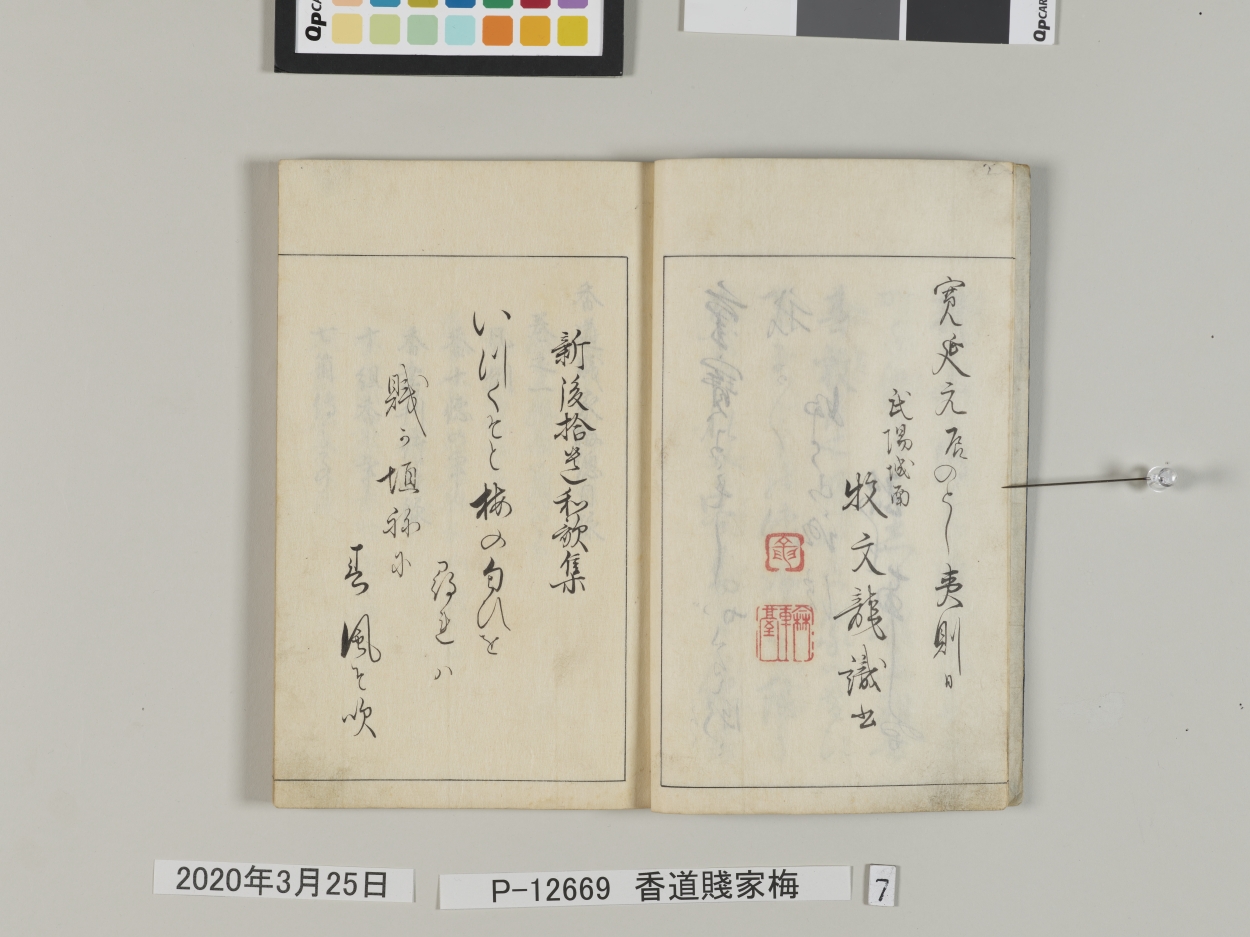 寛延元辰のとし夷則日
武陽城西
牧文龍識書
新後拾遺和歌集
いつくそと梅の匂ひを
尋れハ
賤か垣祢に
春風そ吹
2020年3月25日
P-12669 香道賤家梅
7
QPCARD
QPCAR